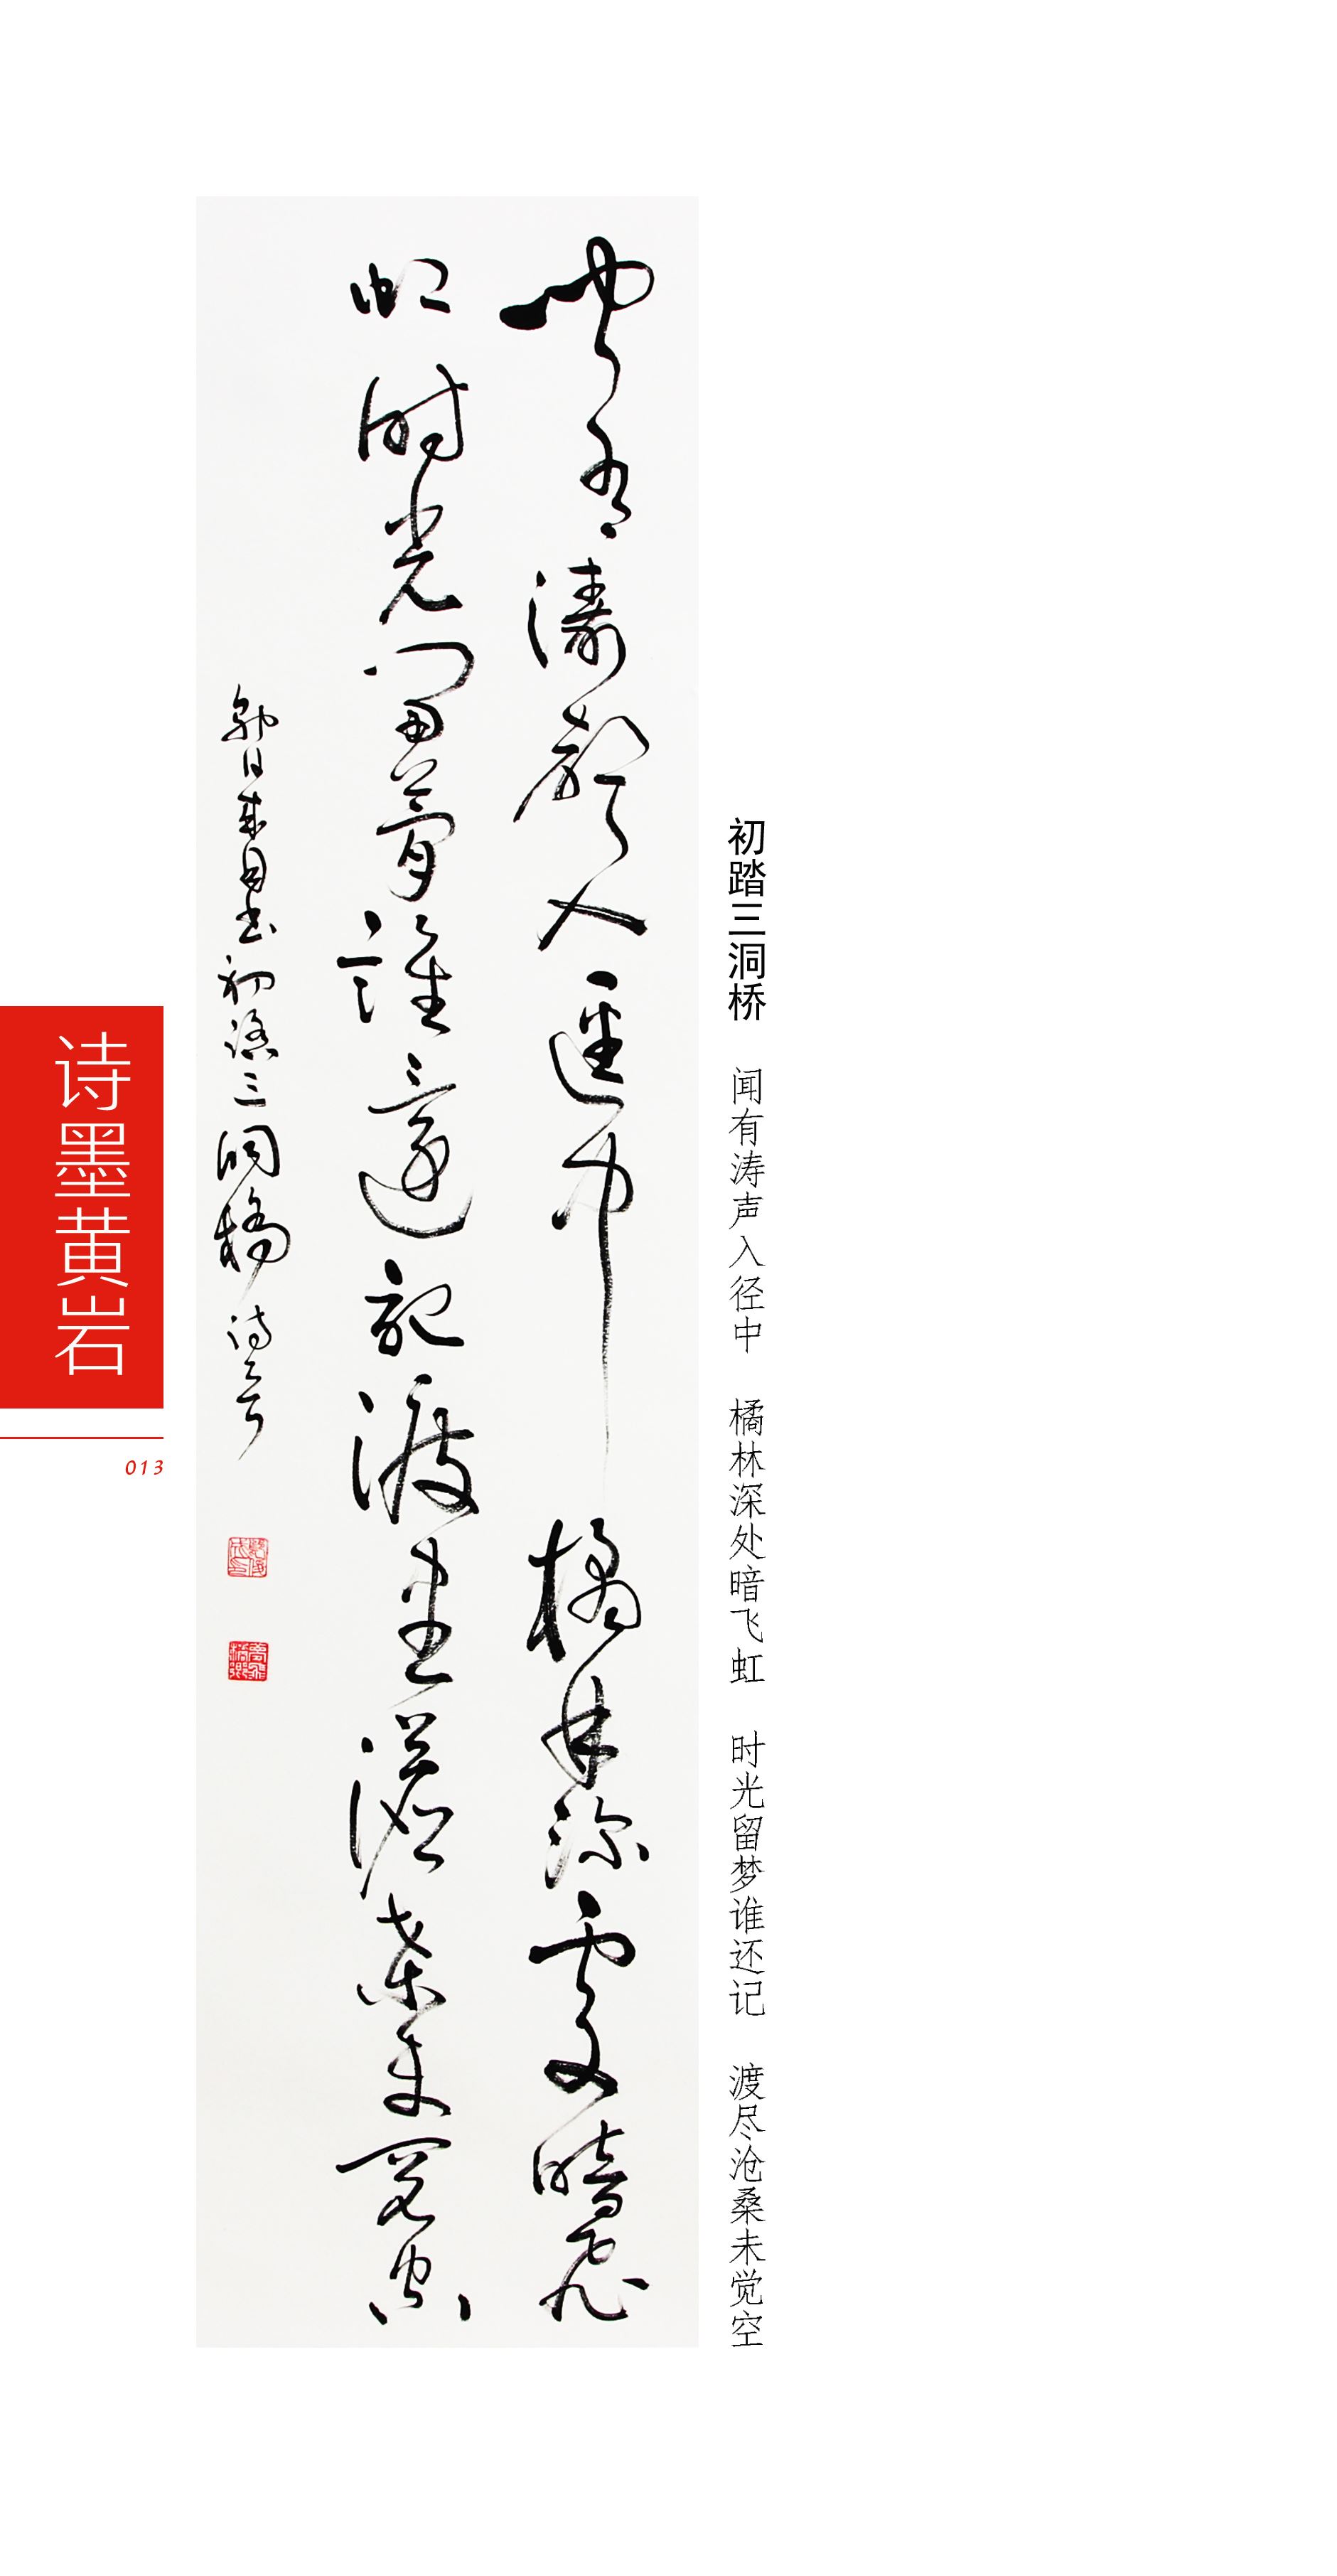 初踏三洞桥 闻有涛声入径中 橘林深处暗飞虹 时光留梦谁还记 渡尽沧桑未觉空
闻有濤聲入逕中橘林深處暗飛
虹时光留夢誰還記渡盡滄桑未覺空
初踏三洞橋诗
诗墨黄岩
013